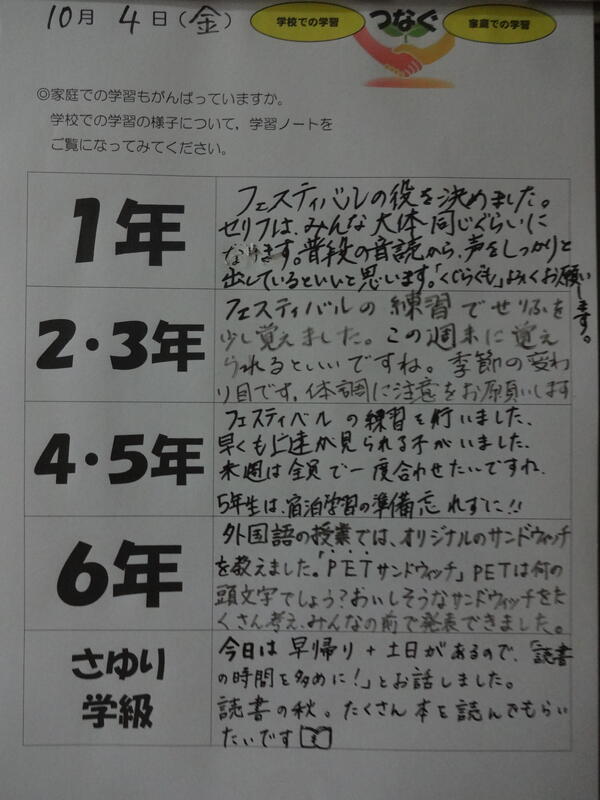 10月 4日(金)
学校での学習 つなぐ 家庭での学習
◎家庭での学習もがんばっていますか。
学校での学習の様子について，学習ノートを
ご覧になってみてください。
1年
フェスティバルの役を決めました。
セリフは、みんな大体同じぐらいに
なります。普段の音読から、声をしっかりと
出しているといいと思います。「くじらぐも」よろしくお願いします。
2・3年
フェスティバルの練習でせりふを
少し覚えました。この週末に覚え
られるといいですね。季節の変わ
り目です。体調に注意をお願いします
4・5年
フェスティバルの練習を行いました。
早くも上達が見られる子がいました。
来週は全員で一度合わせたいですね。
5年生は、宿泊学習の準備忘れずに!!
6年
外国語の授業では、オリジナルのサンドウィッチ
を教えました。「PETサンドウィッチ」PETは何の
頭文字でしょう?おいしそうなサンドウィッチをた
くさん考え、みんなの前で発表できました。
さゆり
学級
今日は早帰り+土日があるので、「読書
の時間を多めに!」とお話しました。
読書の秋。たくさん本を読んでもらい
たいです